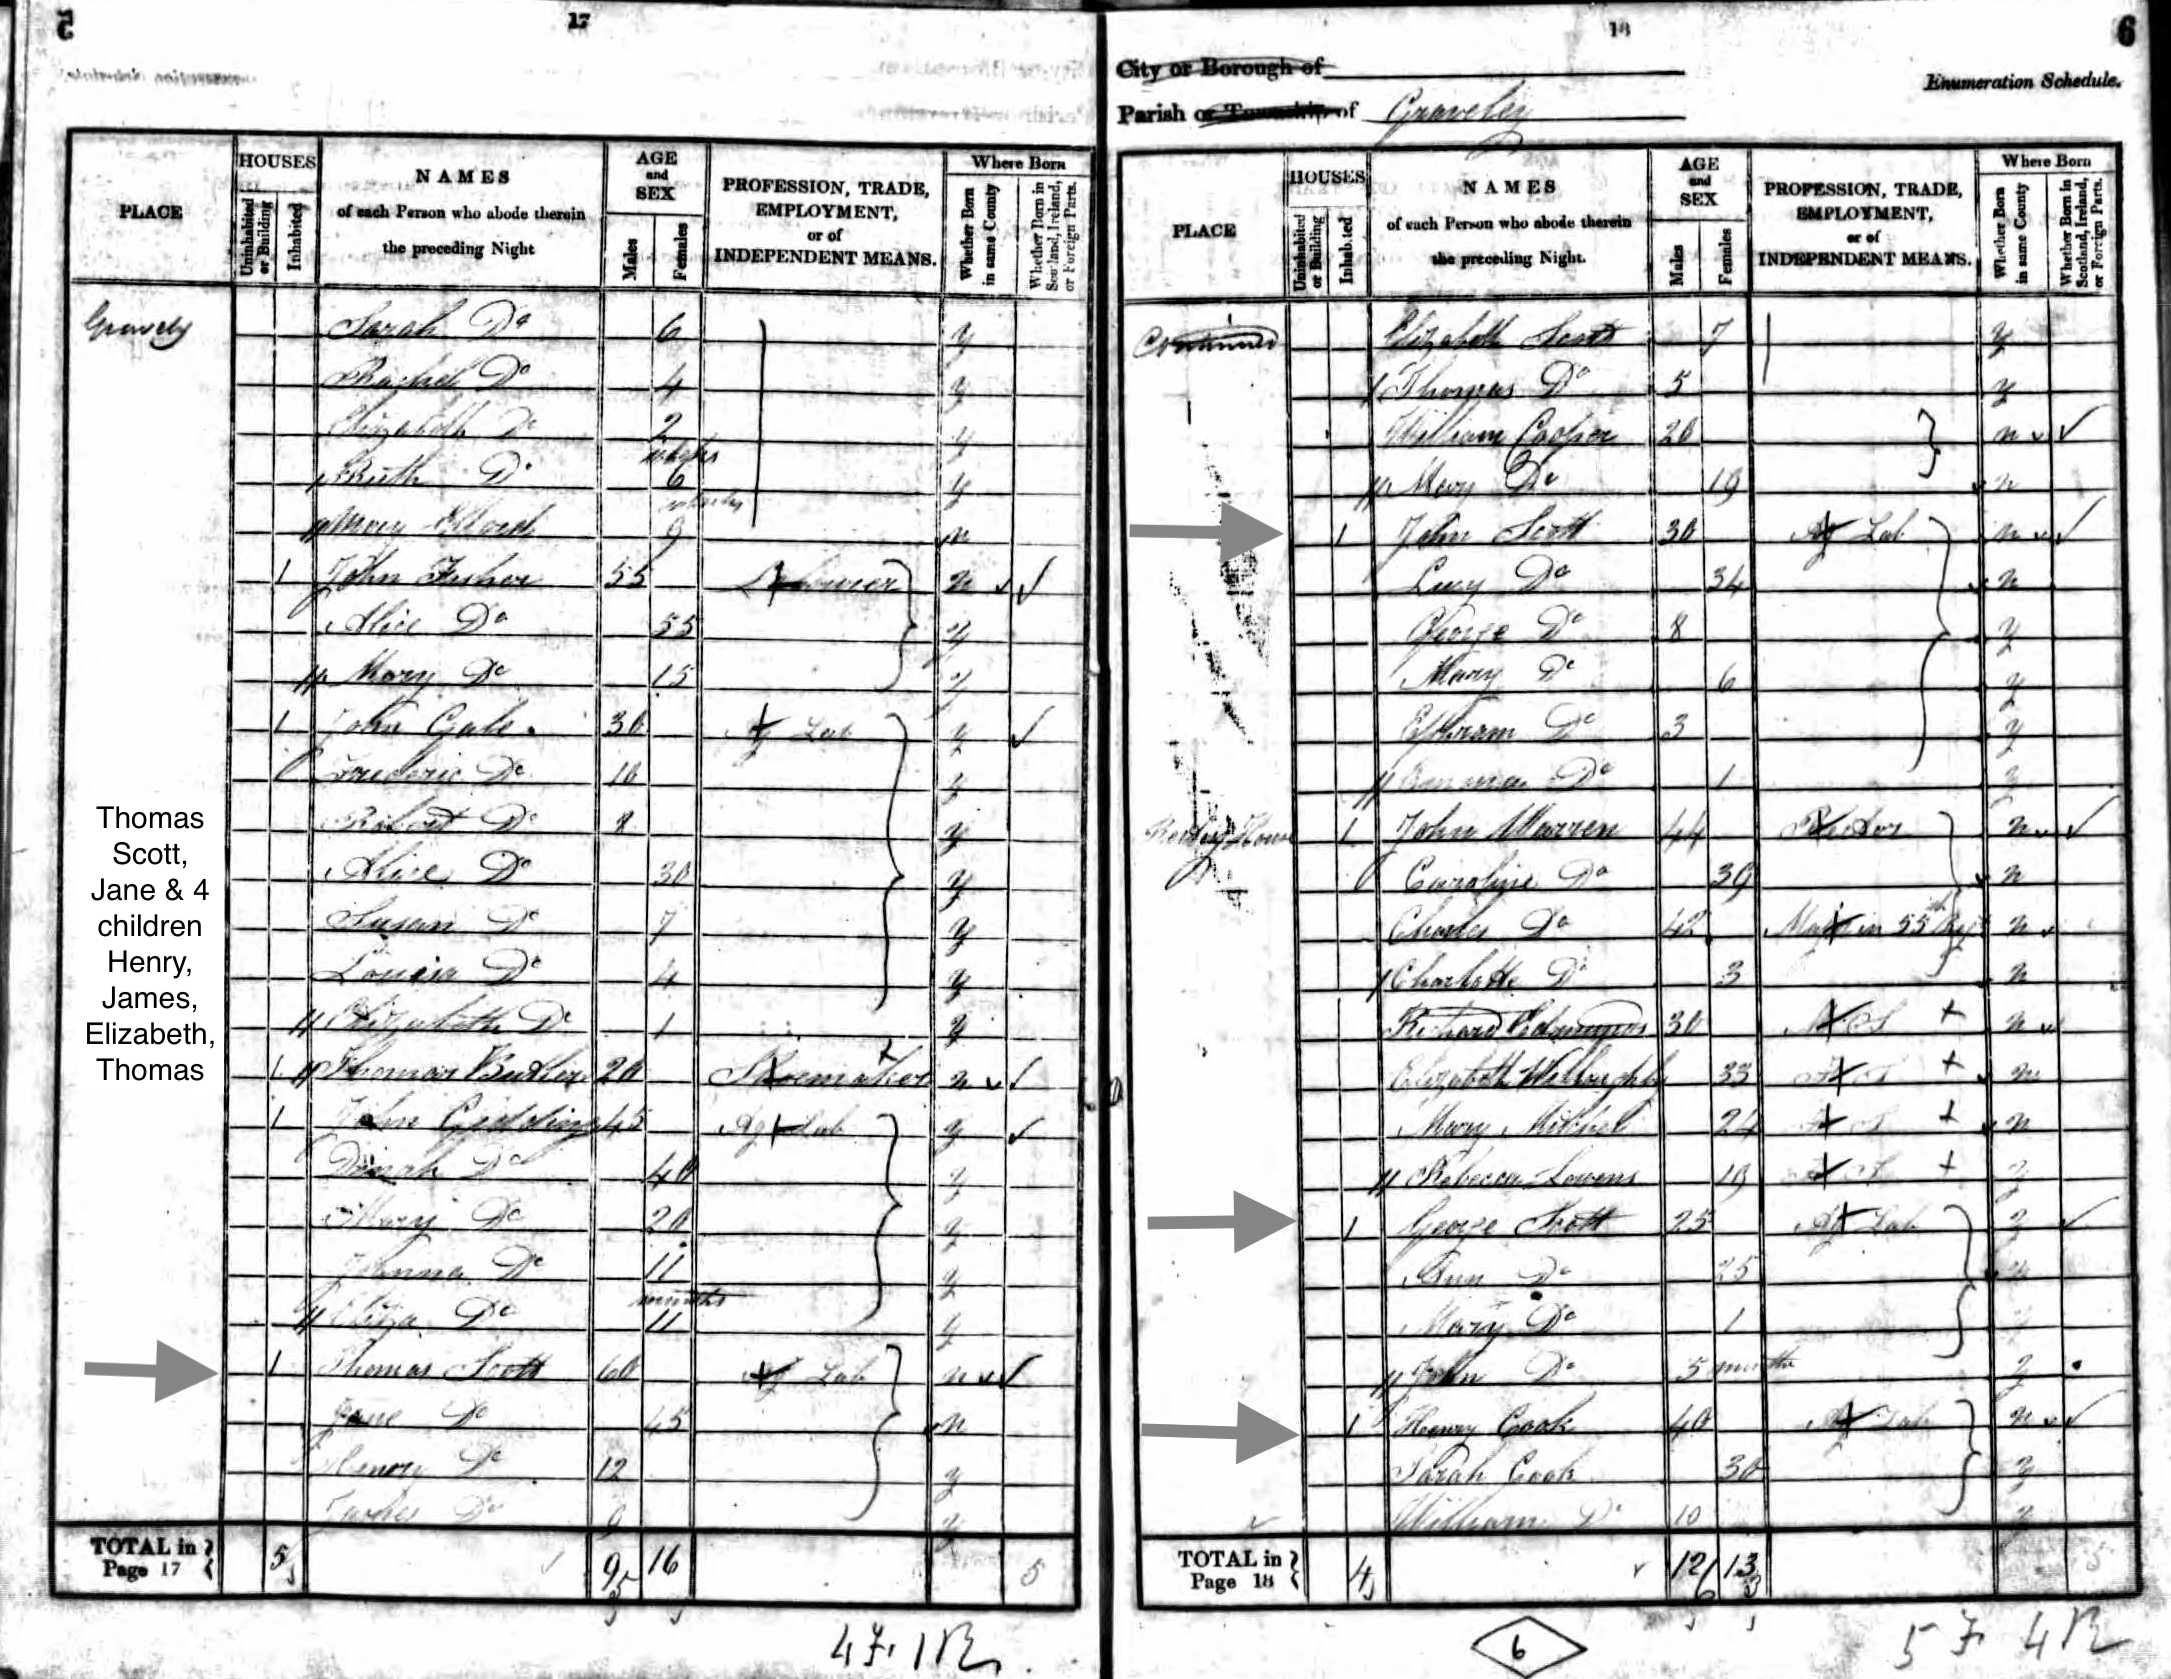 5
17
HOUSES
PLACE
Uninhabited or Building
Inhabited
NAMES
of each Person who abode therein
the preceding Night
AGE
and
SEX
Males
Females
PROFESSION, TRADE,
EMPLOYMENT,
or of
INDEPENDENT MEANS.
Where Born
Whether Born in same County
Whether Born in Scotland, Ireland, or Foreign Parts.
Gravely Sarah Do 6 y
Rachel Do 4 y
Elizabeth Do 2 y
Ruth Do 6 y
Mary 9 n
1 John Fisher 55 Labourer n
Alice Do 55 y
Mary Do 15 y
1 John Gale 30 Ag Lab y
Frederic Do 10 y
Robert Do 8 y
Alice Do 30 y
Susan Do 7 y
Louisa Do 4 y
Elizabeth Do 1 y
1 Thomas Butler 20 Shoemaker n
1 John Giddings 45 Ag Lab y
Dinah Do 40 y
Mary Do 20 y
Do 11 y
months
Eliza Do 11 y
1 Thomas Scott 60 Ag Lab n
Jane Do 45 n
Henry Do 12 y
James Do 9 y
TOTAL in
Page 17
5 9 16 5
4 F. 1 R.
Thomas
Scott,
Jane & 4
children
Henry,
James,
Elizabeth,
Thomas
18
6
City or Borough of
Parish or Township of Graveley
Enumeration Schedule.
PLACE
HOUSES
Uninhabited or Building
Inhabited
NAMES
of each Person who abode therein
the preceding Night.
AGE
and
SEX
Males
Females
PROFESSION, TRADE,
EMPLOYMENT,
or of
INDEPENDENT MEANS.
Where Born
Whether Born in same County
Whether Born in Scotland, Ireland, or Foreign Parts.
Continued Elizabeth Scott 7 y
Thomas Do 5 y
William Cooper 20 n
Mary Do 19 n
1 John Scott 30 Ag Lab n
Lucy Do 34 n
George Do 8 y
Mary Do 6 y
Ephram Do 3 y
Do 1 y
1 John Warren 44 Rector n
Caroline Do 39 n
Charles Do 42 in 55th n
Charlotte Do 3 n
Richard 30 n
Elizabeth Willoughby 33 n
Mary Mitchel 24 n
Rebecca 19 y
1 George Scott 25 Ag Lab y
Ann Do 25 n
Mary Do 1
John Do 5 months y
1 Henry Cook 40 Ag Lab n
Sarah Cook 30 y
William Do 10 y
TOTAL in
Page 18
4 12 13 5
6
5 F 4 R